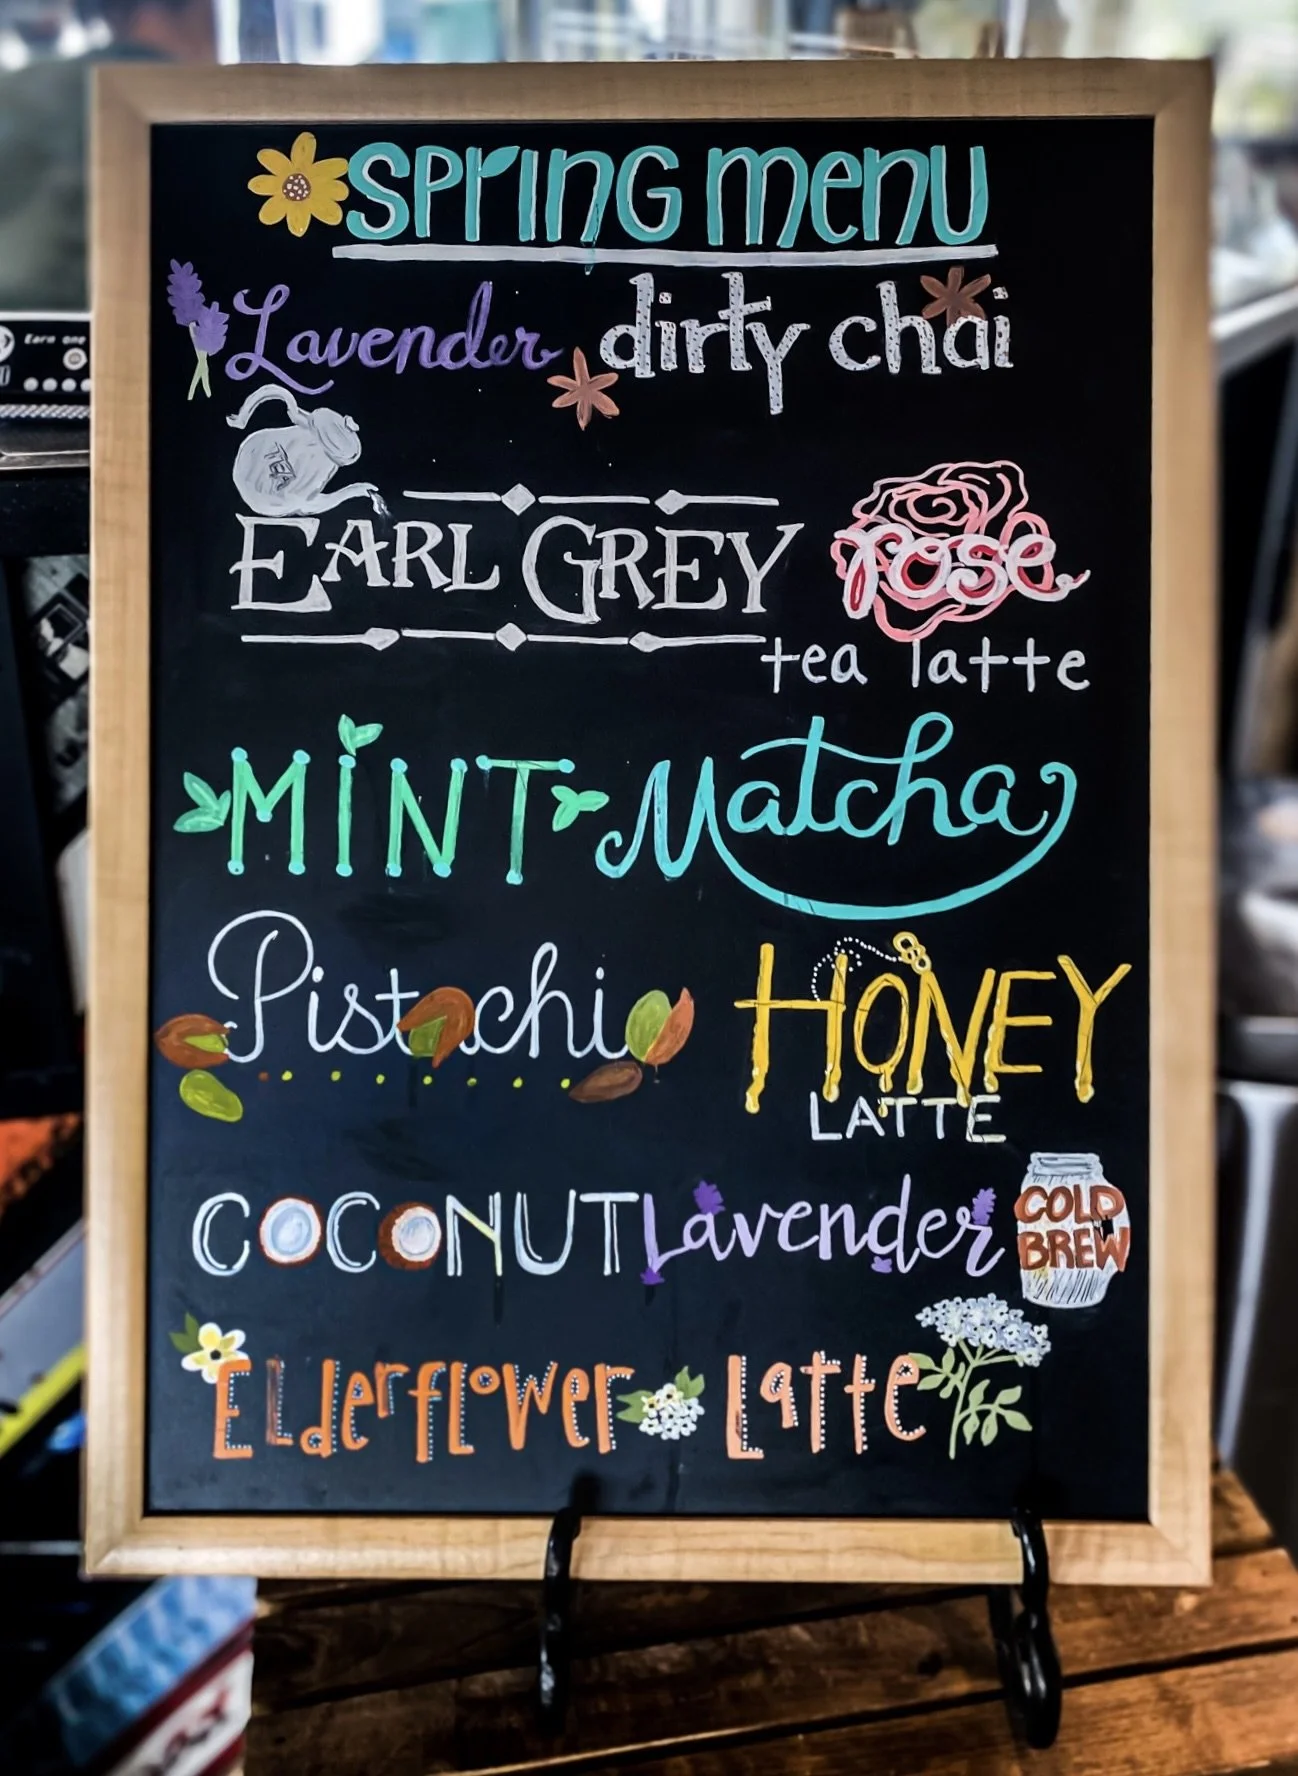 SPrING menu
Lavender dirty chai
TEA
EARL GREY rose
tea latte
MINT Matcha
Pistachi HONEY
LATTE
COCONUT Lavender COLD BREW
ELderflower Latte
Earn one